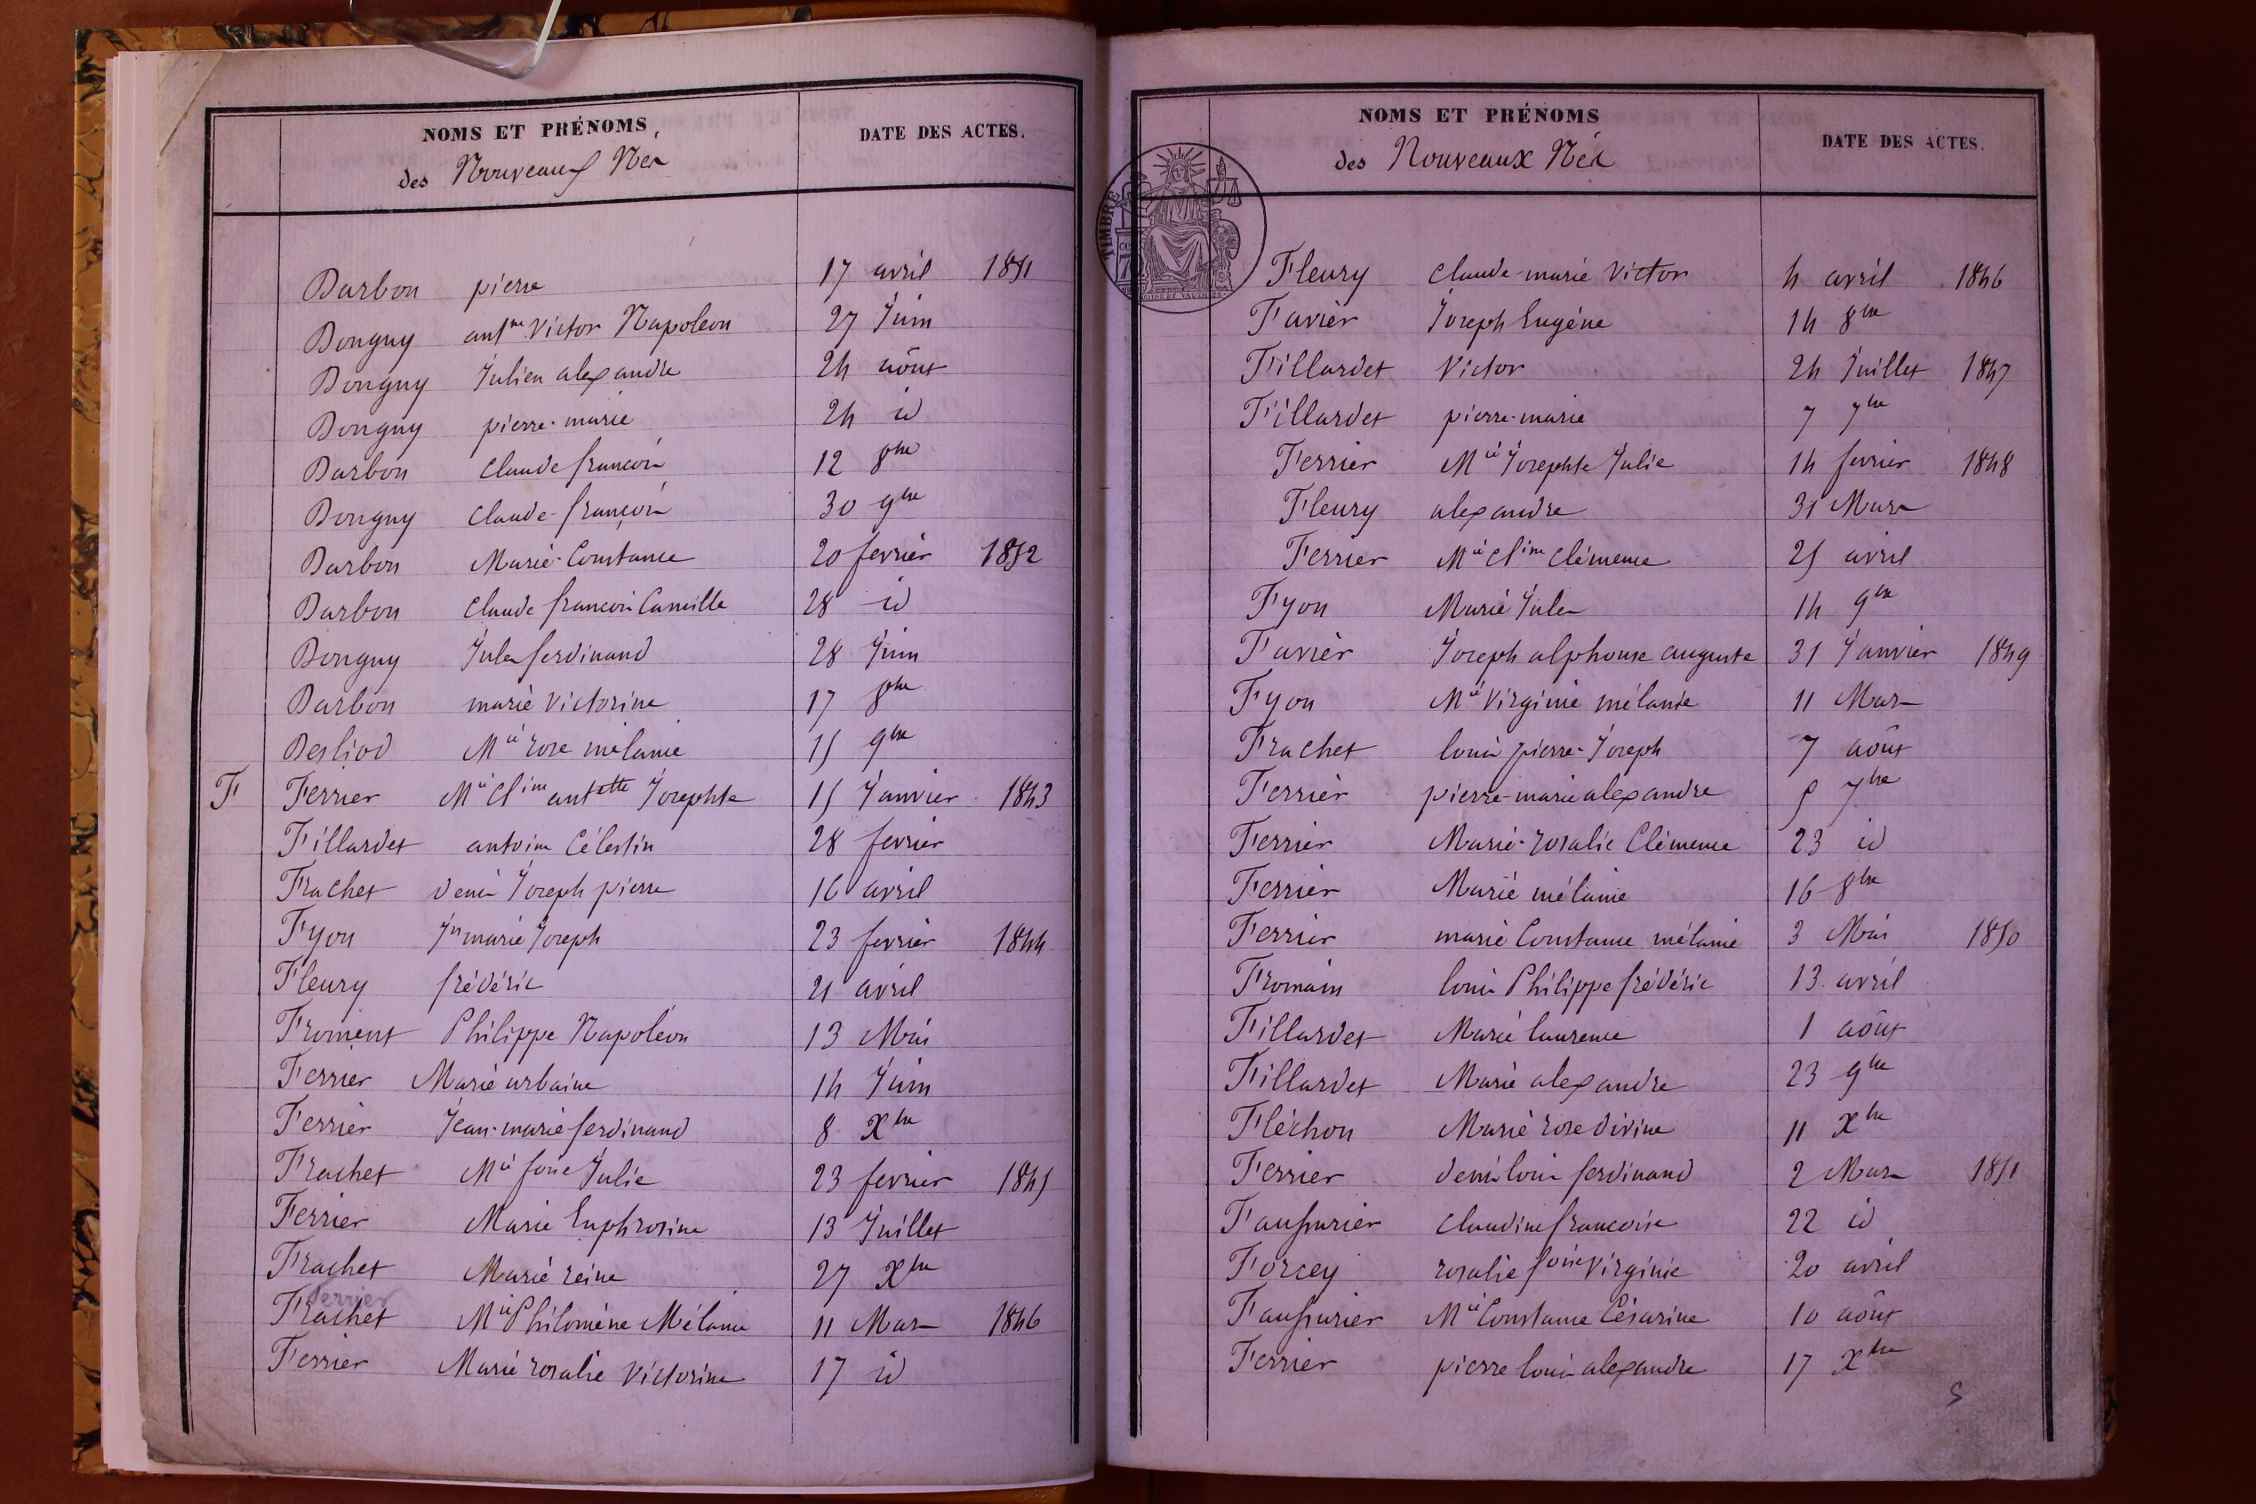 NOMS ET PRÉNOMS
DATE DES ACTES.
des Nouveaux Nés
Darbon pierre 17 avril 1851
Donguy antne Victor Napoleon 27 Juin
Donguy Julien alexandre 24 août
Donguy pierre-marie 24 id
Darbon Claude françois 12 8bre
Donguy Claude-françois 30 9bre
Darbon Marie-Constance 20 fevrier 1852
Darbon Claude françois Camille 28 id
Donguy Jules ferdinand 28 Juin
Darbon marie Victorine 17 8bre
Desliod Mie rose mélanie 15 9bre
F Ferrier Mie Cline antette Josephte 15 Janvier 1843
Fillardet antoine Célestin 28 fevrier
Frachet denis Joseph pierre 16 avril
Fyon Jn marie Joseph 23 fevrier 1844
Fleury frédéric 21 avril
Froment Philippe Napoléon 13 Mai
Ferrier Marie urbaine 14 Juin
Ferrier Jean-marie ferdinand 8 Xbre
Frachet Mie foise Julie 23 fevrier 1845
Ferrier Marie Euphrosine 13 Juillet
Frachet Marie reine 27 Xbre
ferrier
Frachet Mie Philomène Mélanie 11 Mars 1846
Ferrier Marie rosalie Victorine 17 id
NOMS ET PRÉNOMS
DATE DES ACTES.
des Nouveaux Nés
TIMBRE
Fleury Claude-marie Victor 4 avril 1846
Favier Joseph Eugéne 14 8bre
Fillardet Victor 24 Juillet 1847
Fillardet pierre-marie 7 7bre
Ferrier Mie Josephte Julie 14 fevrier 1848
Fleury alexandre 31 Mars
Ferrier Mie Cline Clémence 25 avril
Fyon Marie Jules 14 9bre
Favier Joseph alphonse auguste 31 Janvier 1849
Fyon Mie Virginie mélanie 11 Mars
Frachet louis pierre-Joseph 7 août
Ferrier pierre-marie alexandre 5 7bre
Ferrier Marie-rosalie Clémence 23 id
Ferrier Marie mélanie 16 8bre
Ferrier marie Constance mélanie 3 Mai 1850
Fromain louis Philippe frédéric 13 avril
Fillardet Marie laurence 1 août
Fillardet Marie alexandre 23 9bre
Fléchon Marie rose divine 11 Xbre
Ferrier denis louis ferdinand 2 Mars 1851
Faussurier Claudine françoise 22 id
Forcey rosalie foise Virginie 20 avril
Faussurier Mie Constance Césarine 10 août
Ferrier pierre louis alexandre 17 Xbre
5